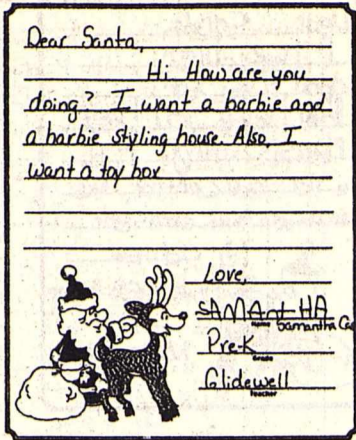 Dear Santa,
Hi. How are you
doing? I want a barbie and
a barbie styling house. Also, I
want a toy box
Love,
SAMAntHA
Name Samantha
Pre-K
Grade
Glidewell
Teacher